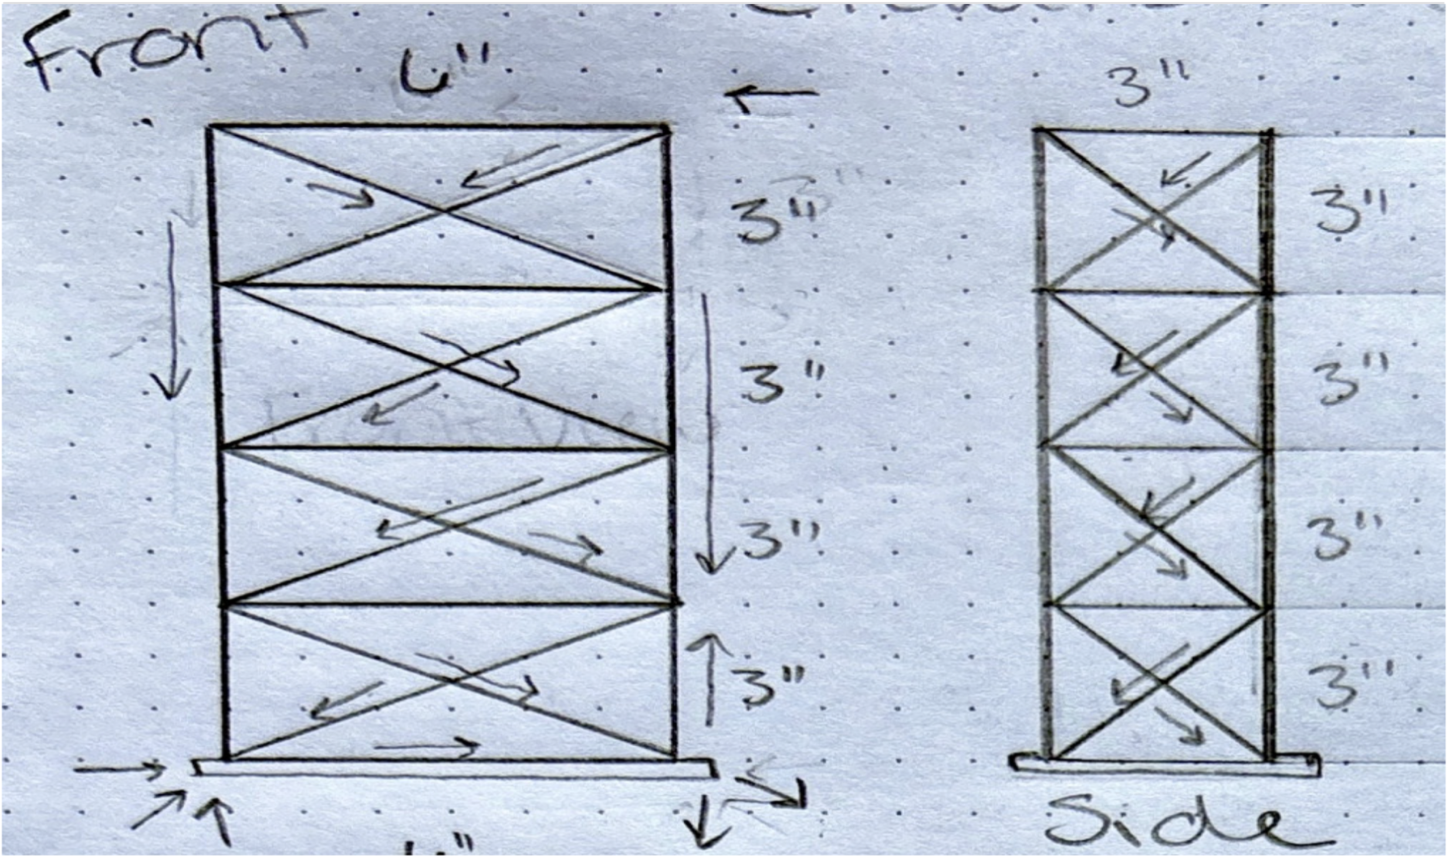 Front
6"
3"
3"
3"
3"
3"
3"
3"
3"
3"
Side